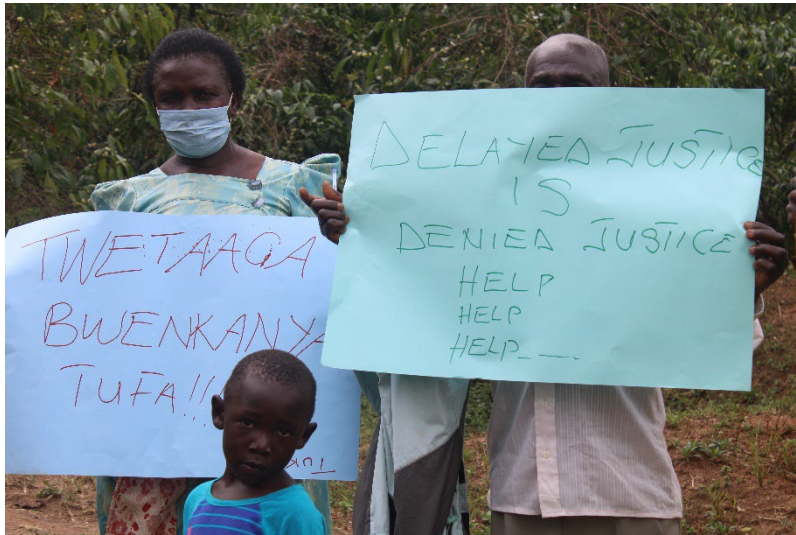 TWETAAGA
BWENKANYA
TUFA!!
DELAYED JUSTICE
IS
DENIED JUSTICE
HELP
HELP
HELP_ _ _.